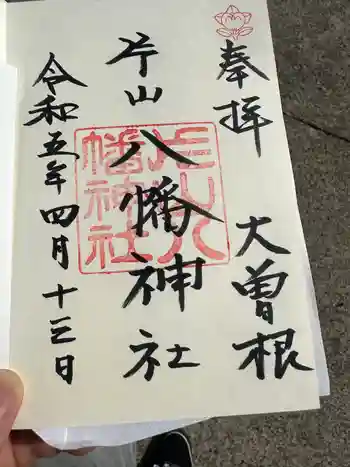 奉拝
大曽根
片山
八幡神社
片山八
幡神社
令和五年四月十三日